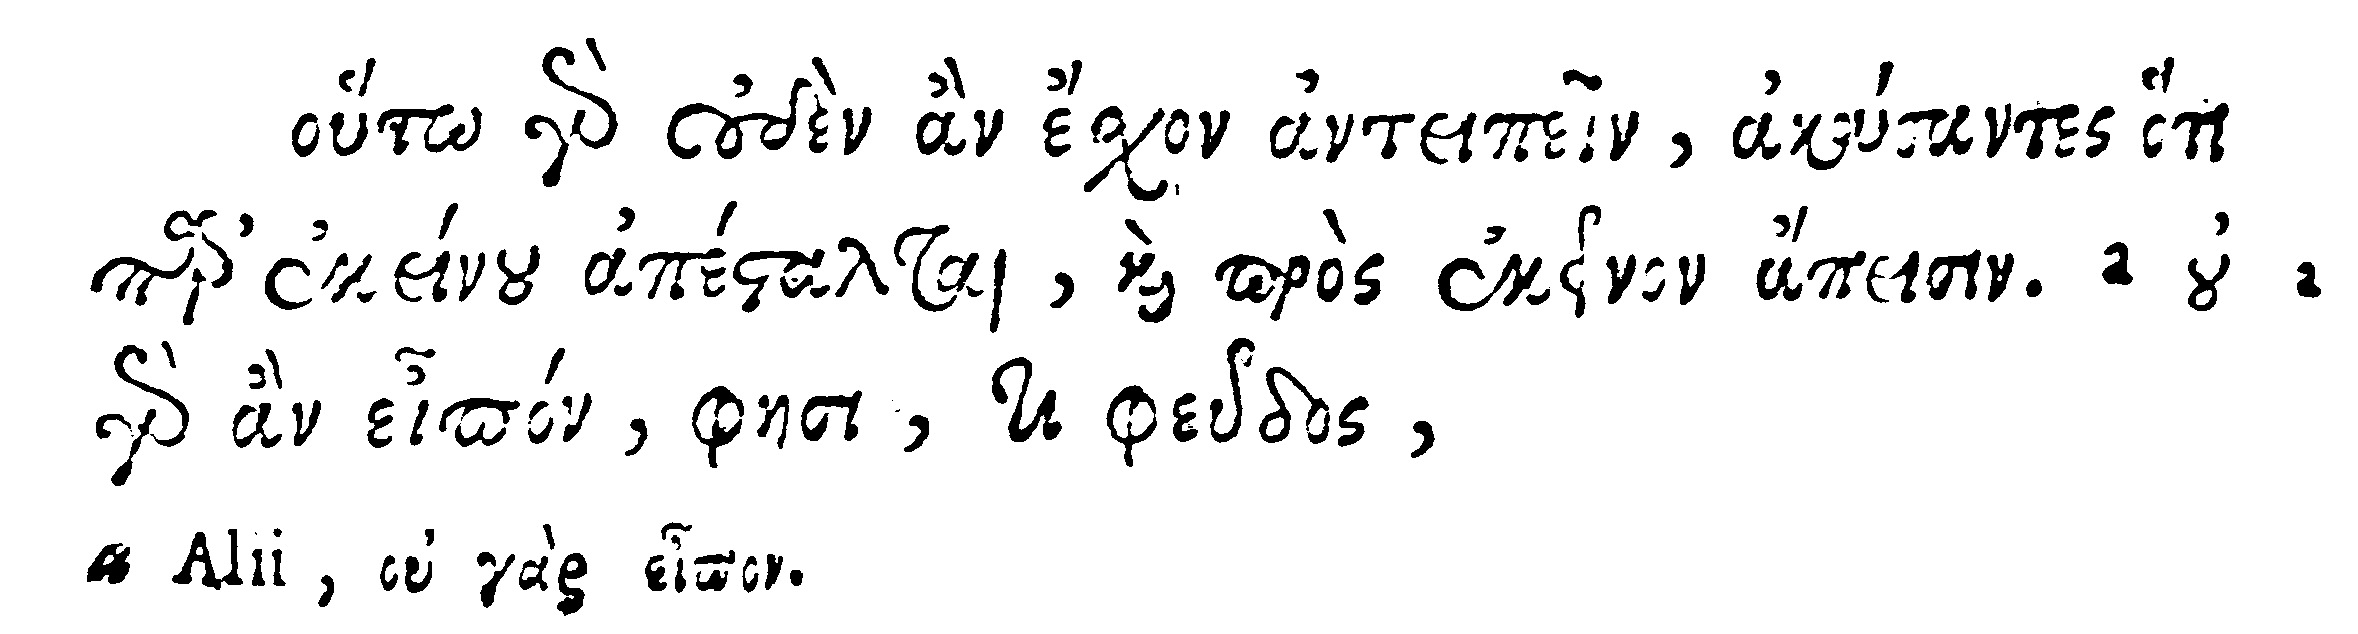 οὕτω γὰρ οὐδὲν ἂν ἔχον ἀντειπεῖν, ἀκούσαντες ὅτι
παρ' ἐκείνου ἀπέσταλται, καὶ πρὸς ἐκεῖνον ἄπεισιν. a οὐ a
γὰρ ἂν εἶπόν, φησι, τι ψεῦδος,
a Alii, οὐ γὰρ εἶπον.